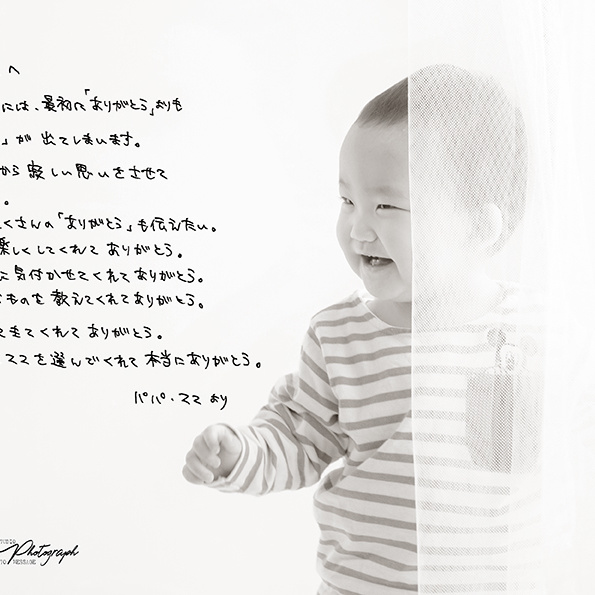 へ
には、最初に「ありがとう」よりも
」が 出てしまいます。
から 寂しい思いをさせて
。
くさんの「ありがとう」も伝えたい。
楽しくしてくれて ありがとう。
に 気付かせてくれて ありがとう。
ものを 教えてくれて ありがとう。
てきてくれて ありがとう。
ママを選んでくれて 本当に ありがとう。
パパ・ママ より
Photograph
MESSAGE